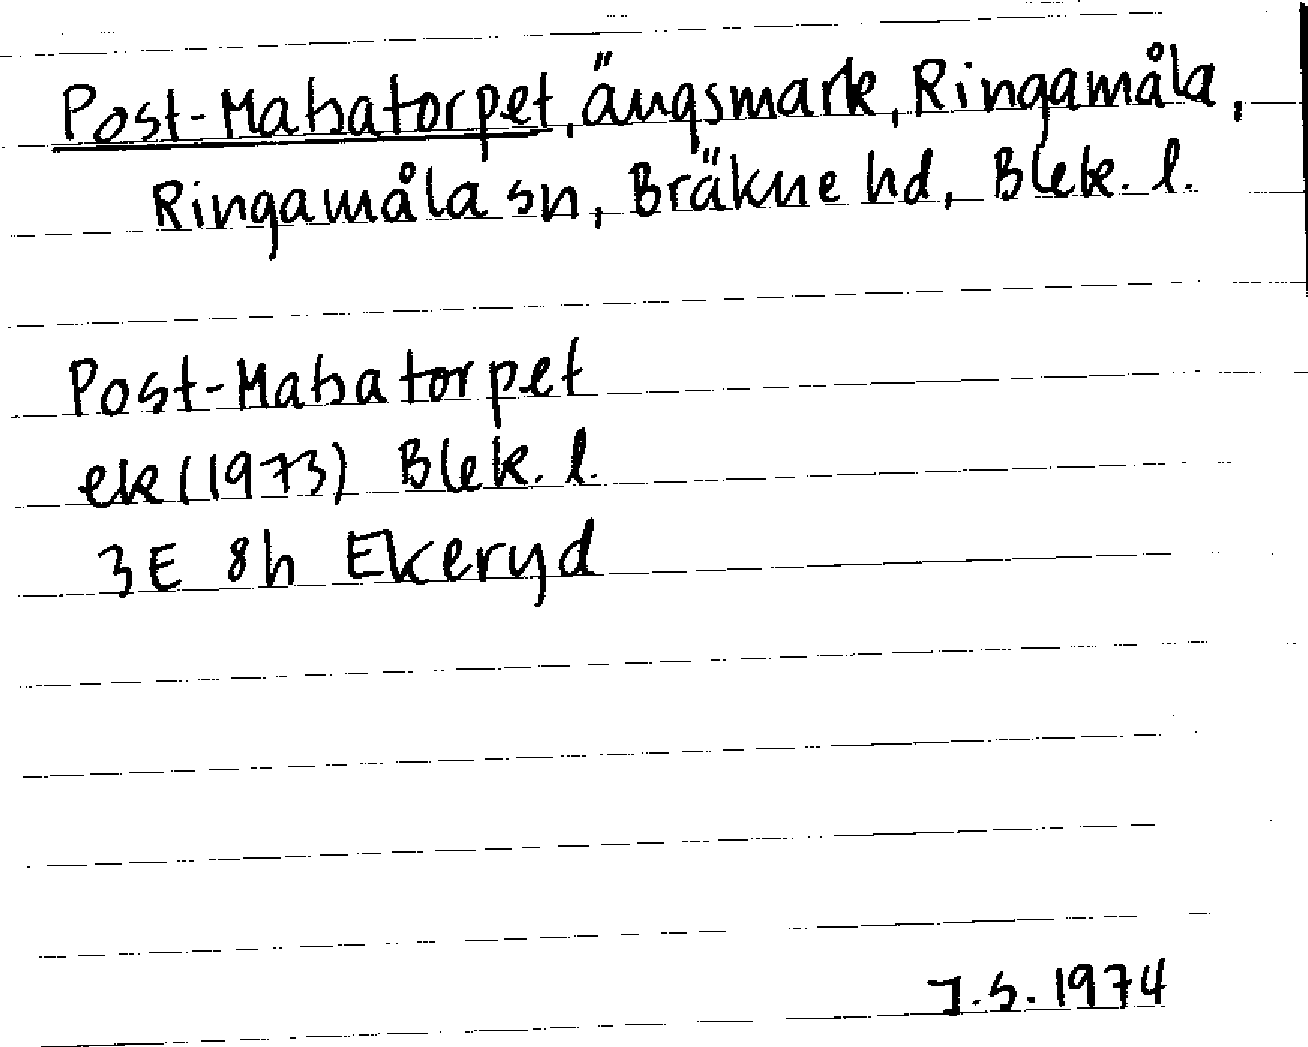 Post-Matsatorpet, ängsmark, Ringamåla,
Ringamåla sn, Bräkne hd, Blek. l.
Post-Matsatorpet
ek (1973) Blek. l.
3E 8h Ekeryd
J.S. 1974